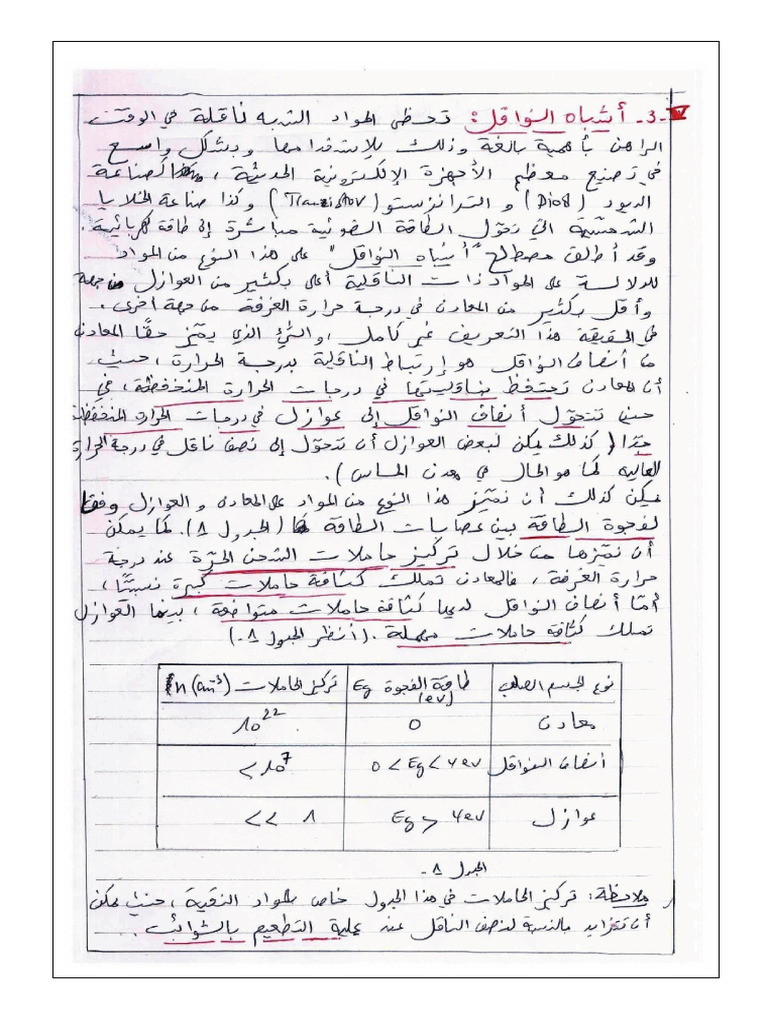 3- أشباه النواقل: تحظى المواد الشبه ناقلة في الوقت
الراهن بأهمية بالغة وذلك لاستخدامها وبشكل واسع
في تصنيع معظم الأجهزة الإلكترونية الحديثة، كصناعة
الديود (Diod) و الترانزستو (Tranzistov) وكذا صناعة الخلايا
الشمسية التي تحوّل الطاقة الضوئية مباشرة إلى طاقة كهربائية.
وقد أطلق مصطلح "أشباه النواقل" على هذا النوع من المواد
للدلالة على المواد ذات الناقلية أعلى بكثير من العوازل من جهة
وأقل بكثير من المعادن في درجة حرارة الغرفة من جهة أخرى.
في الحقيقة هذا التعريف غير كامل، والشيئ الذي يميّز حقّا المعادن
من أنصاف النواقل هو إرتباط الناقلية بدرجة الحرارة، حيث
أن المعادن تحتفظ بناقليتها في درجات الحرارة المنخفظة، في
حين تتحوّل أنصاف النواقل إلى عوازل في درجات الحرارة المنخفظة
جدّا (كذلك يمكن لبعض العوازل أن تتحوّل إلى نصف ناقل في درجة الحرارة
العالية كما هو الحال في معدن الماس).
يمكن كذلك أن نميّز هذا النوع من المواد على المعادن و العوازل وفقا
لفجوة الطاقة بين عصابات الطاقة (الجدول 1). كما يمكن
أن نميّزها من خلال تركيز حاملات الشحن الحرّة عند درجة
حرارة الغرفة، فالمعادن تملك كثافة حاملات كبيرة نسبيّا،
أمّا أنصاف النواقل لديها كثافة حاملات متواضعة، بينما العوازل
تملك كثافة حاملات مهملة. (أنظر الجدول 1-)
نوع الجسم الصلب | طاقة الفجوة Eg (eV) | تركيز الحاملات n (cm⁻³)
معادن | 0 | 10²²
أنصاف النواقل | 0 < Eg < 4eV | < 10⁷
عوازل | Eg > 4eV | << 1
الجدول 1-
ملاحظة: تركيز الحاملات في هذا الجدول خاص بالمواد النقية، حيث يمكن
أن تتزايد بالنسبة لنصف الناقل عند عملية التطعيم بالشوائب.